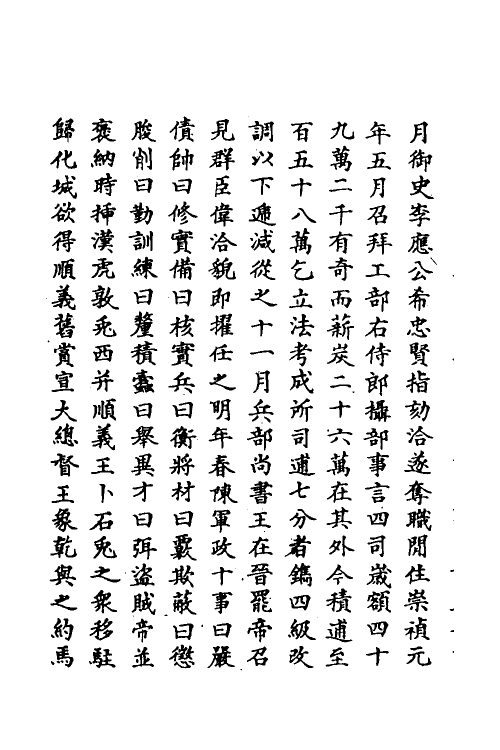 月御史李應公希忠賢指劾洽遂奪職閒住崇禎元
年五月召拜工部右侍郎攝部事言四司歲額四十
九萬二千有奇而薪炭二十六萬在其外今積逋至
百五十八萬乞立法考成所司逋七分者鐫四級改
調以下遞減從之十一月兵部尚書王在晉罷帝召
見群臣偉洽貌即擢任之明年春陳軍政十事曰嚴
債帥曰修實備曰核實兵曰衡將材曰覈欺蔽曰懲
朘削曰勤訓練曰釐積蠹曰舉異才曰弭盜賊帝並
褒納時揷漢虎敦兎西并順義王卜石兎之衆移駐
歸化城欲得順義舊賞宣大總督王象乾與之約馬